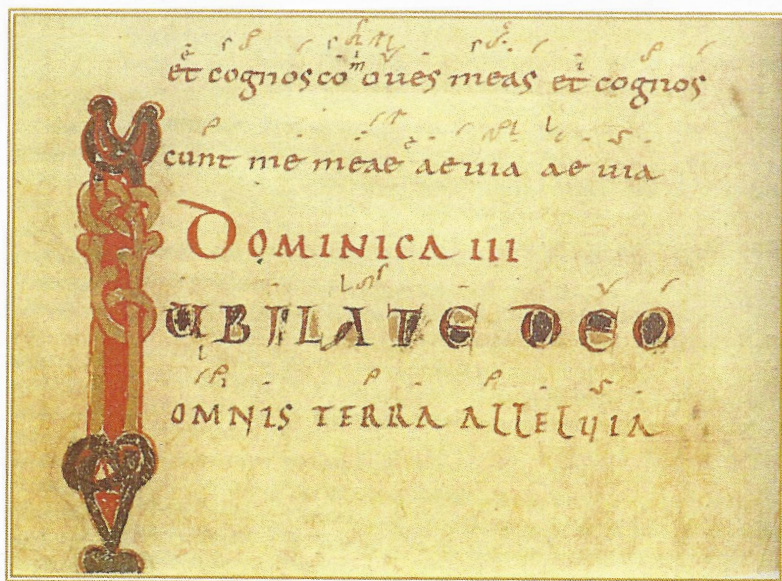 et cognosco oues meas et cognos
cunt me meae aeuia aeuia
DOMINICA III
IUBILATE DEO
OMNIS TERRA ALLELUIA